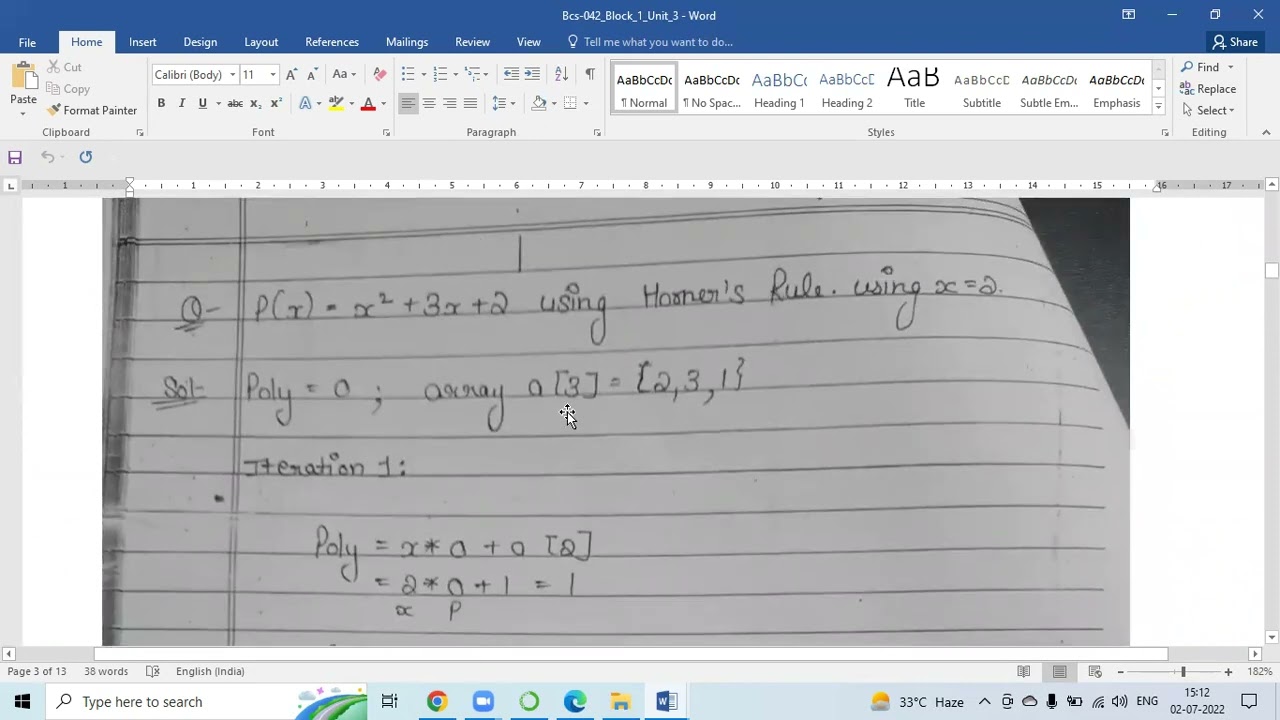 Bcs-042_Block_1_Unit_3 - Word
File Home Insert Design Layout References Mailings Review View Tell me what you want to do... Share
Paste
Cut
Copy
Format Painter
Calibri (Body) 11
Aa
B I U abc x₂ x² A ab A
AaBbCcDc AaBbCcDc AaBbCc AaBbCcE AaB AaBbCcD AaBbCcDc AaBbCcDc
¶ Normal ¶ No Spac... Heading Heading 2 Title Subtitle Subtle Em... Emphasis
Find
Replace
Select
Clipboard Font Paragraph Styles Editing
1 1 2 3 4 5 6 7 8 9 10 11 12 13 14 15 16 17
Q- P(x) = x² + 3x + 2 using Horner's Rule. using x = 2.
Sol- Poly = 0 ; array a [3] = {2,3,1}
Iteration 1:
Poly = x * 0 + a [2]
= 2 * 0 + 1 = 1
x P
Page 3 of 13 38 words English (India) 182%
Type here to search 33°C Haze ENG 15:12
02-07-2022